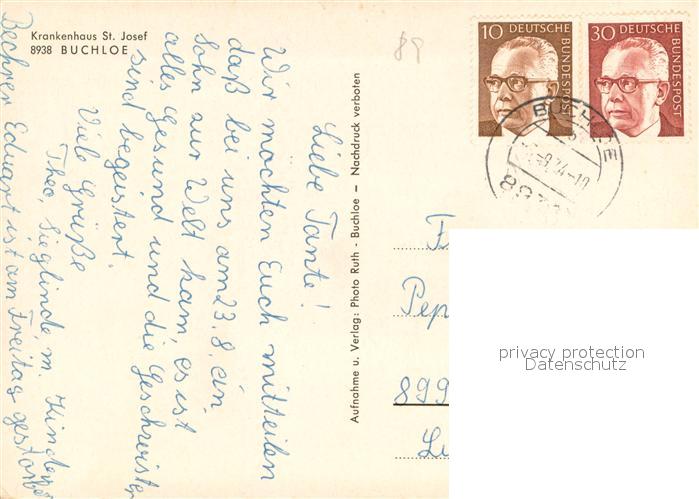 Krankenhaus St. Josef
8938 BUCHLOE
89
10 DEUTSCHE
BUNDESPOST
30 DEUTSCHE
BUNDESPOST
BUCHLOE
8938
Liebe Tante!
Wir möchten Euch mitteilen
daß bei uns am 23.8. ein
Sohn zur Welt kam, es ist
alles gesund und die Geschwister
sind begeistert.
Viele Grüße
Theo, Sieglinde, m. Kinder
Bechrer Eduart ist am Freitag gestorben
Aufnahme u. Verlag: Photo Ruth - Buchloe — Nachdruck verboten
F
Pep
899
L
privacy protection
Datenschutz